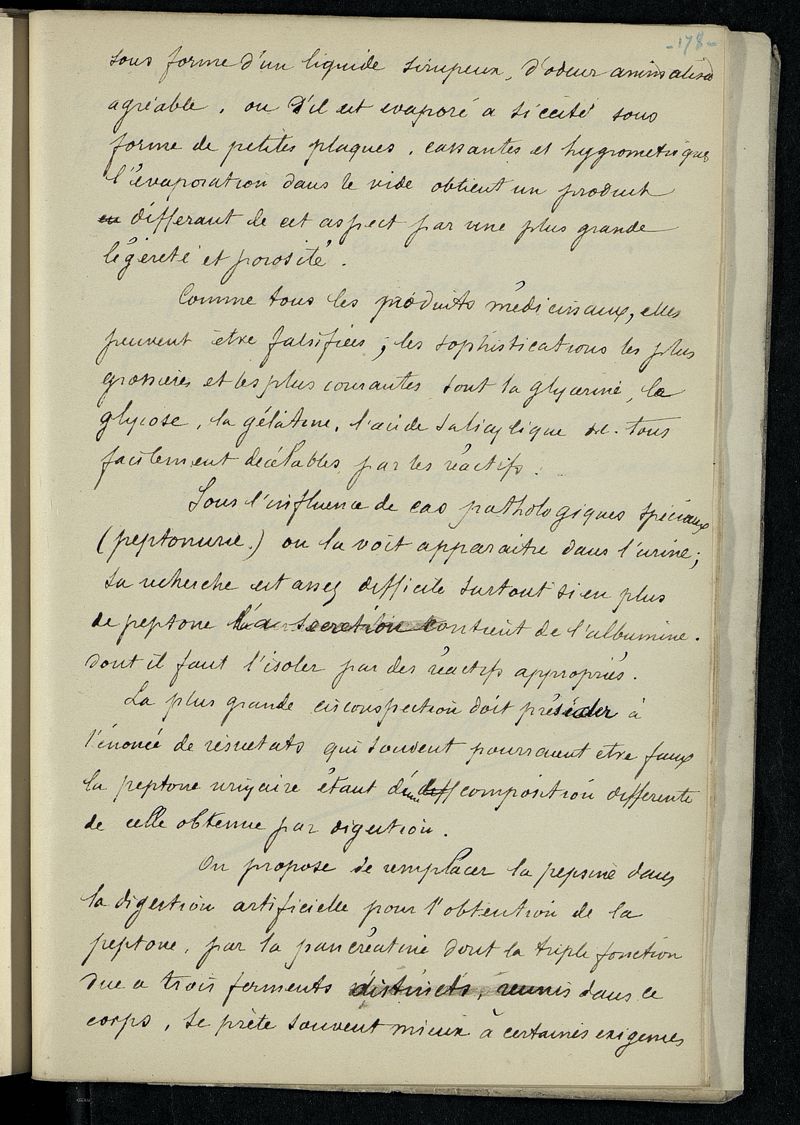 -178-
sous forme d'un liquide sirupeux, d'odeur animalisé
agréable, ou s'il est evaporé a siccité sous
forme de petites plaques, cassantes et hygrometriques
l'évaporation dans le vide obtient un produit
en différant de cet aspect par une plus grande
légéreté et porosité.
Comme tous les produits médicinaux, elles
peuvent être falsifiées; les sophistications les plus
grossieres et les plus courantes sont la glycerine, le
glycose, la gélatine, l'acide salicylique etc. tous
facilement decélables par les réactifs.
Sous l'influence de cas pathologiques spéciaux
(peptonurie.) on la voit apparaitre dans l'urine;
sa recherche est assez difficile surtout si en plus
de peptone la secrétion contient de l'albumine.
dont il faut l'isoler par des réactifs appropriés.
La plus grande circonspection doit présider à
l'énoncé de résultats qui souvent pourraient etre faux
la peptone urinaire étant d'une diff composition differente
de celle obtenue par digestion.
On propose de remplacer la pepsine dans
la digestion artificielle pour l'obtention de la
peptone, par la pancréatine dont la triple fonction
due a trois ferments distincts, reunis dans ce
corps, se prête souvent mieux à certaines exigences